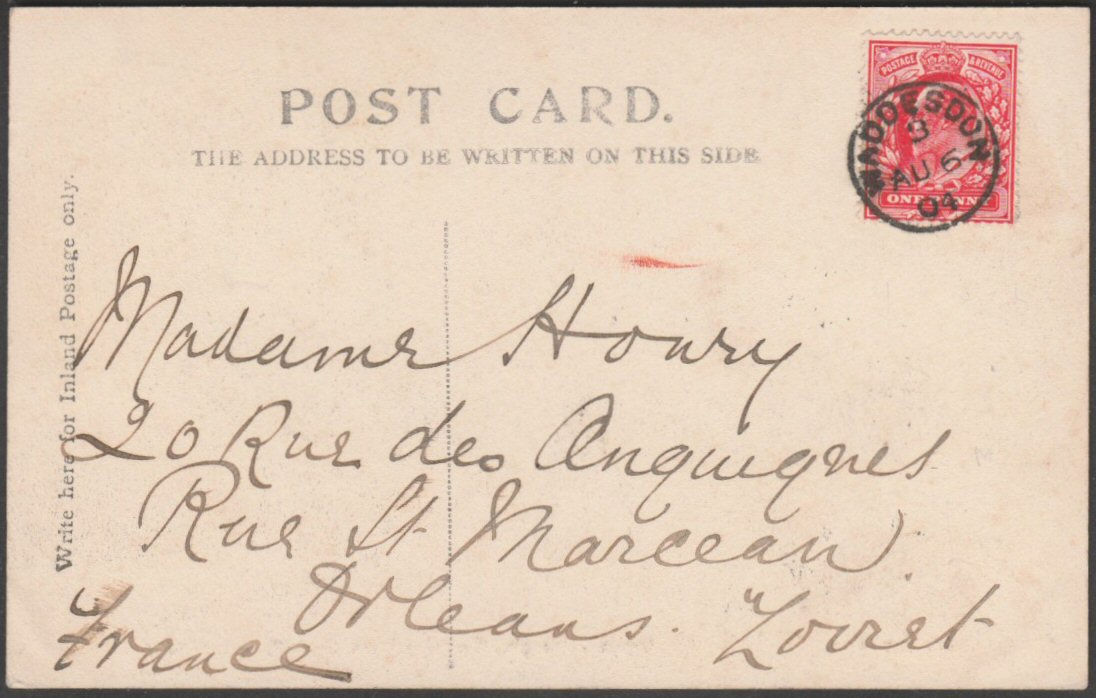 POST CARD.
THE ADDRESS TO BE WRITTEN ON THIS SIDE
Write here for Inland Postage only.
POSTAGE & REVENUE
ONE PENNY
WADDESDON
B
AU 6
04
Madame Houry
20 Rue des Anguignes
Rue St Marceau
Orleans. Loiret
France